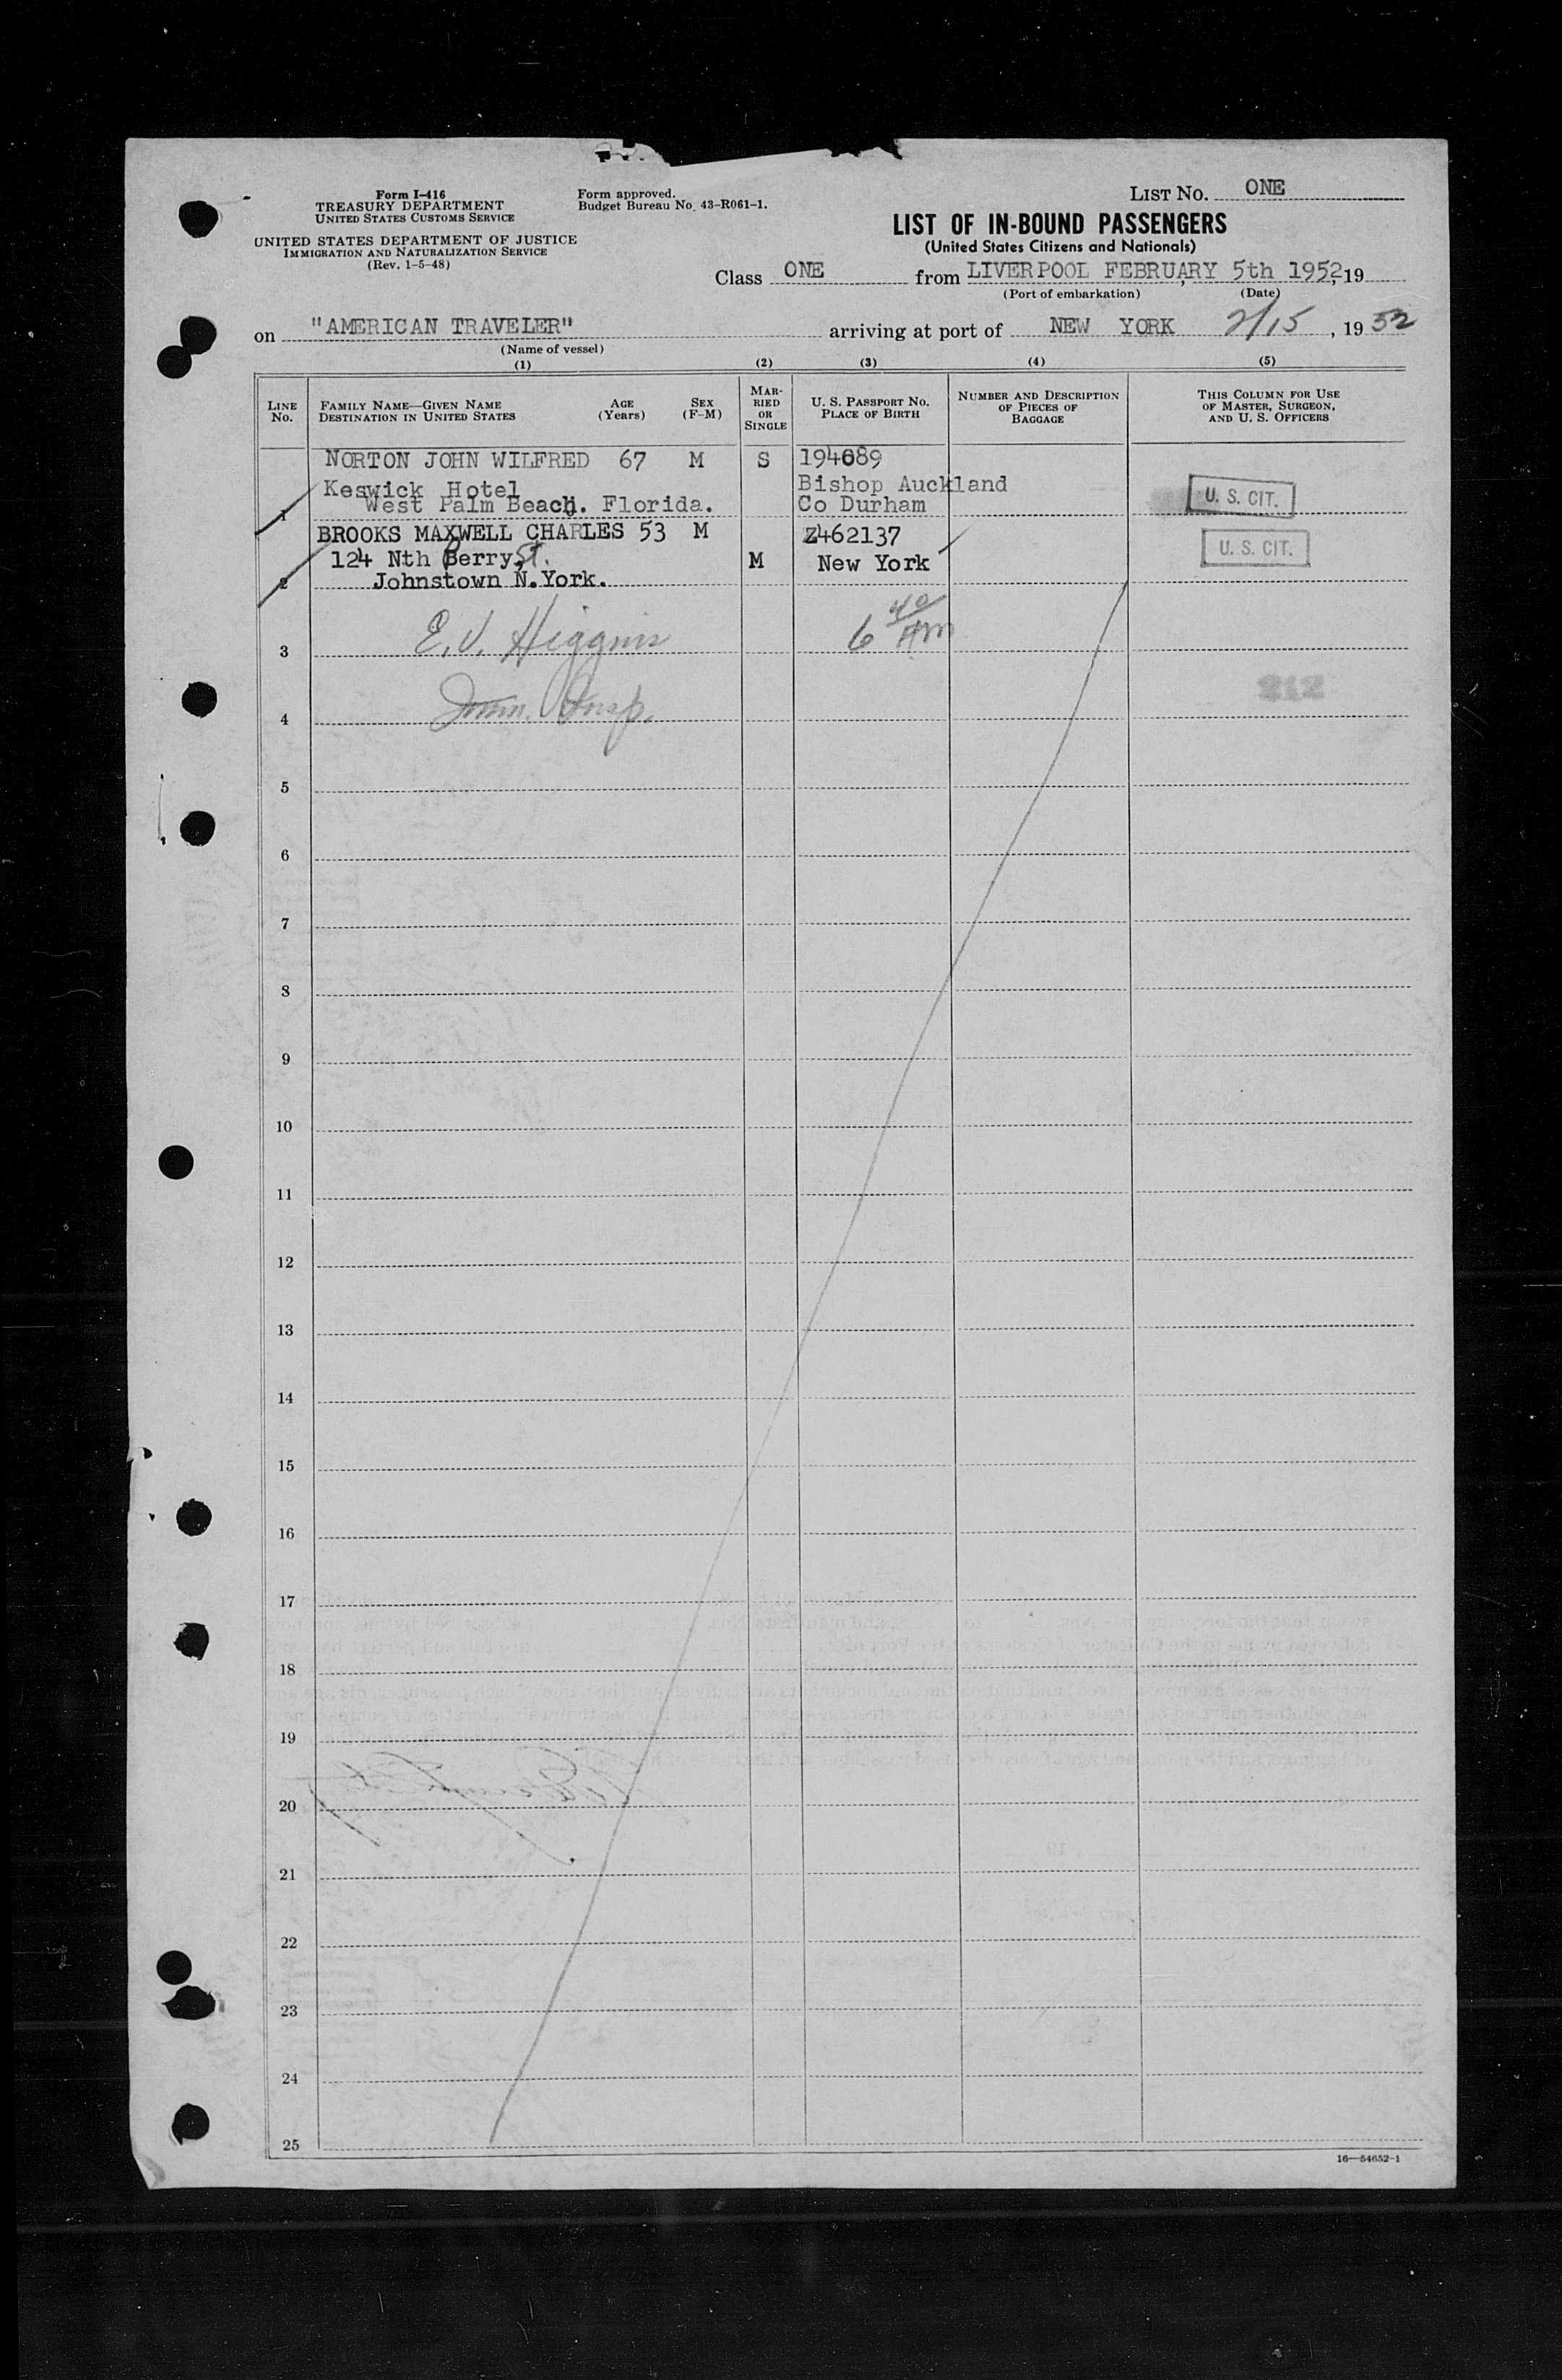 Form I-416
TREASURY DEPARTMENT
UNITED STATES CUSTOMS SERVICE
UNITED STATES DEPARTMENT OF JUSTICE
IMMIGRATION AND NATURALIZATION SERVICE
(Rev. 1-5-48)
Form approved.
Budget Bureau No. 43-R061-1.
LIST NO. ONE
LIST OF IN-BOUND PASSENGERS
(United States Citizens and Nationals)
Class ONE from LIVERPOOL FEBRUARY 5th 1952, 19
(Port of embarkation) (Date)
on "AMERICAN TRAVELER" arriving at port of NEW YORK 2/15, 1952
(Name of vessel)
(1) (2) (3) (4) (5)
LINE NO.
FAMILY NAME—GIVEN NAME
DESTINATION IN UNITED STATES
AGE (Years)
SEX (F-M)
MARRIED OR SINGLE
U. S. PASSPORT NO.
PLACE OF BIRTH
NUMBER AND DESCRIPTION OF PIECES OF BAGGAGE
THIS COLUMN FOR USE OF MASTER, SURGEON, AND U. S. OFFICERS
NORTON JOHN WILFRED 67 M S 194089
Keswick Hotel Bishop Auckland
1 West Palm Beach. Florida. Co Durham U. S. CIT.
BROOKS MAXWELL CHARLES 53 M Z462137
124 Nth Perry St. M New York U. S. CIT.
2 Johnstown N.York.
3 E. V. Higgins 6 40 AM
4 Imm. Insp. 212
5
6
7
8
9
10
11
12
13
14
15
16
17
18
19
20
21
22
23
24
25
16—54652-1